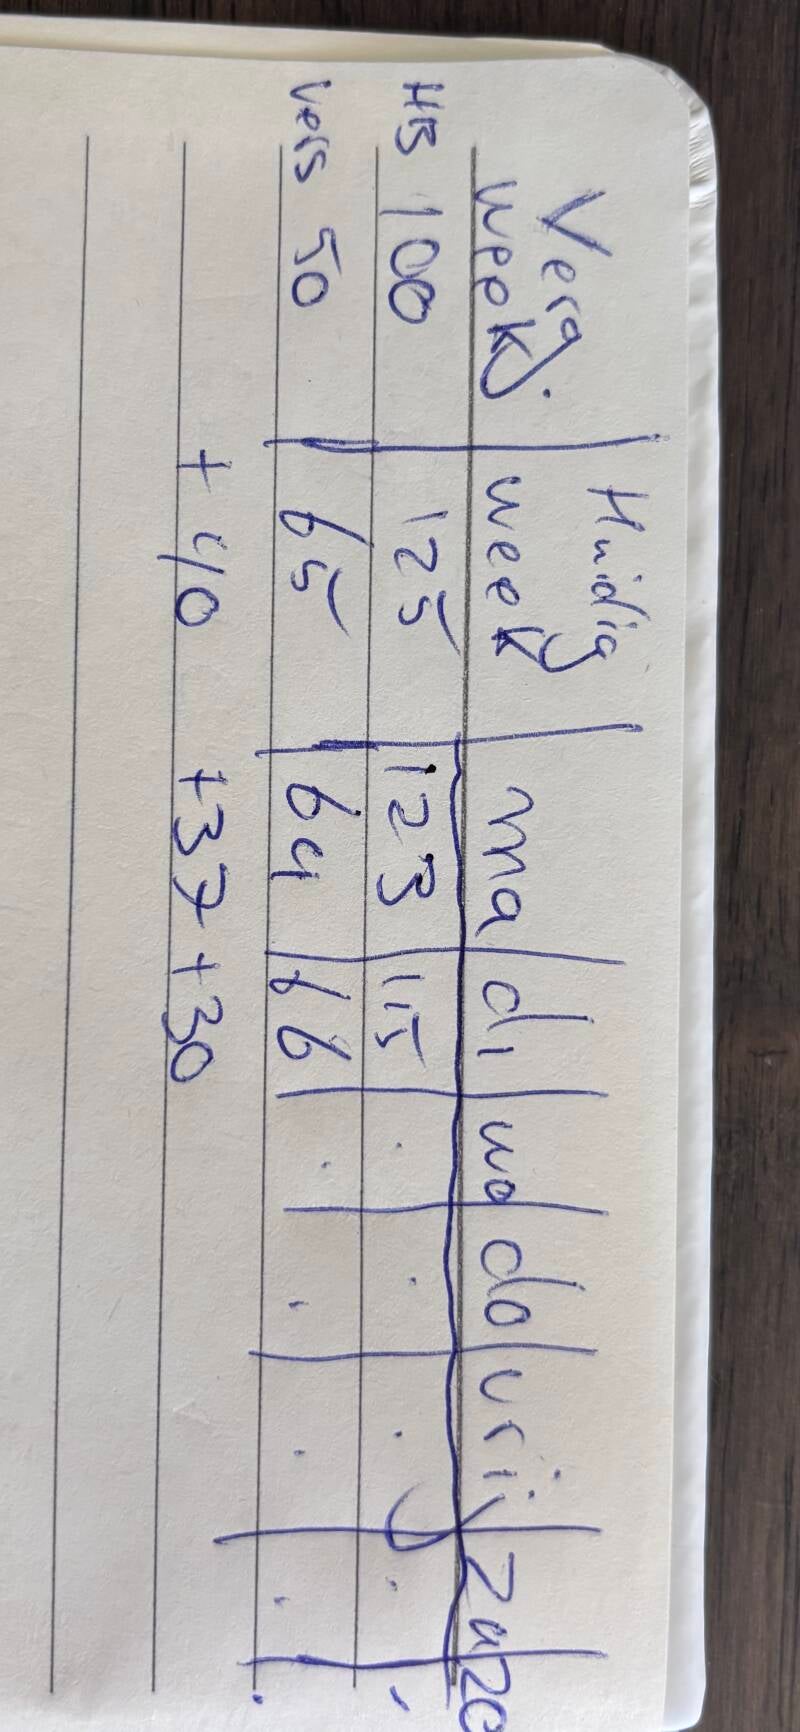 Verg. Huidig
week week ma di wo do vrij za zo
HB 100 125 123 115 . . . . .
Vers 50 65 64 66 . . . . .
+40 +37 +30